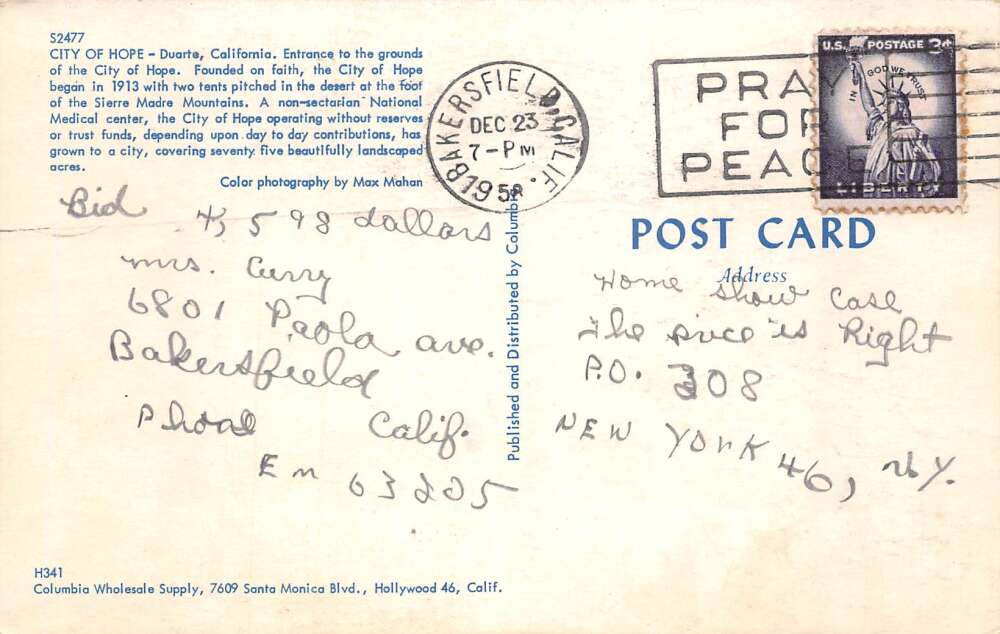 S2477
CITY OF HOPE – Duarte, California. Entrance to the grounds
of the City of Hope. Founded on faith, the City of Hope
began in 1913 with two tents pitched in the desert at the foot
of the Sierre Madre Mountains. A non-sectarian National
Medical center, the City of Hope operating without reserves
or trust funds, depending upon day to day contributions, has
grown to a city, covering seventy five beautifully landscaped
acres.
Color photography by Max Mahan
BAKERSFIELD, CALIF.
DEC 23
7-PM
1958
PRAY
FOR
PEACE
U.S. POSTAGE 3¢
IN GOD WE TRUST
LIBERTY
Bid 43,598 dollars
Mrs. Curry
6801 Paola ave.
Bakersfield
Calif.
Phone
Em 63225
Published and Distributed by Columbia
POST CARD
Address
Home Show Case
The price is Right
P.O. 308
NEW YORK 46, N.Y.
H341
Columbia Wholesale Supply, 7609 Santa Monica Blvd., Hollywood 46, Calif.